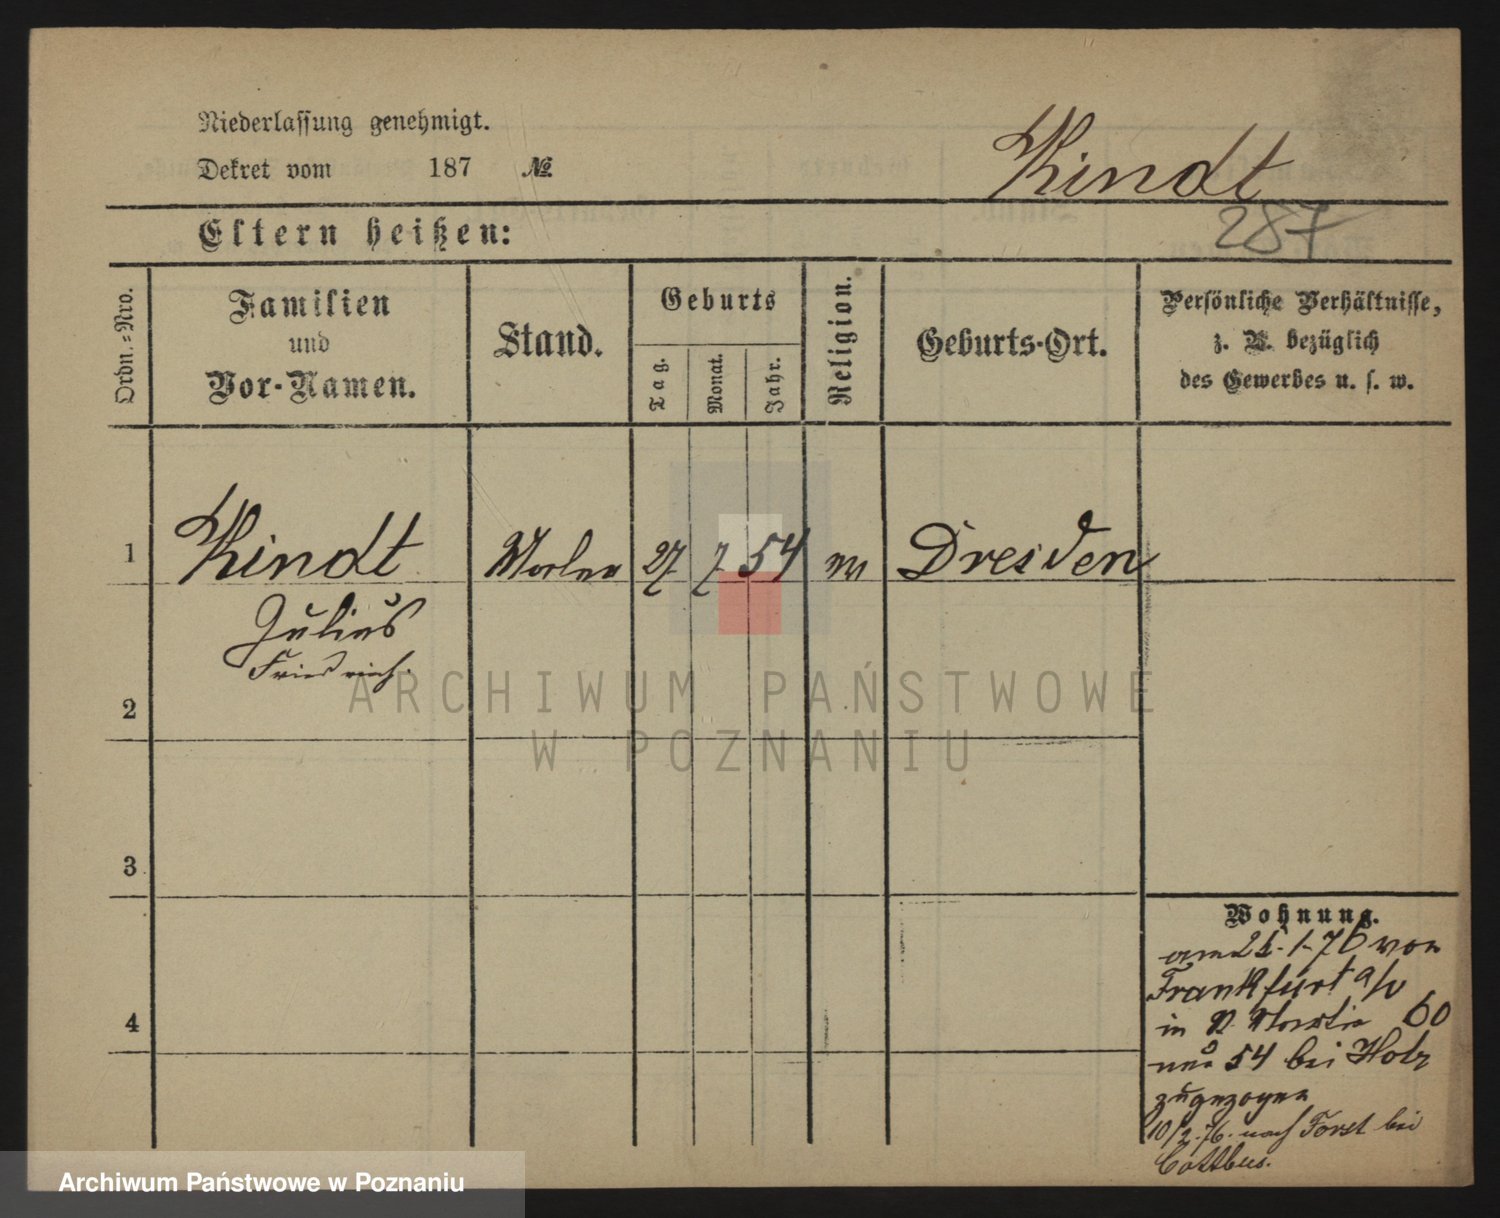 Niederlassung genehmigt.
Dekret vom 187 №
Kindt
287
Eltern heißen:
Ordn.-Nro.
Familien
und
Vor-Namen.
Stand.
Geburts
Tag.
Monat.
Jahr.
Religion.
Geburts-Ort.
Persönliche Verhältnisse,
z. B. bezüglich
des Gewerbes u. s. w.
1 Kindt Maler 27 7 54 ev Dresden
Julius
Friedrich.
2
3
4
Wohnung.
am 25.1.76 von
Frankfurt a/O
in St. Martin 60
54 bei Holz
zugezogen
10/2.76. nach Forst bei
Cottbus.
ARCHIWUM PAŃSTWOWE
W POZNANIU
Archiwum Państwowe w Poznaniu